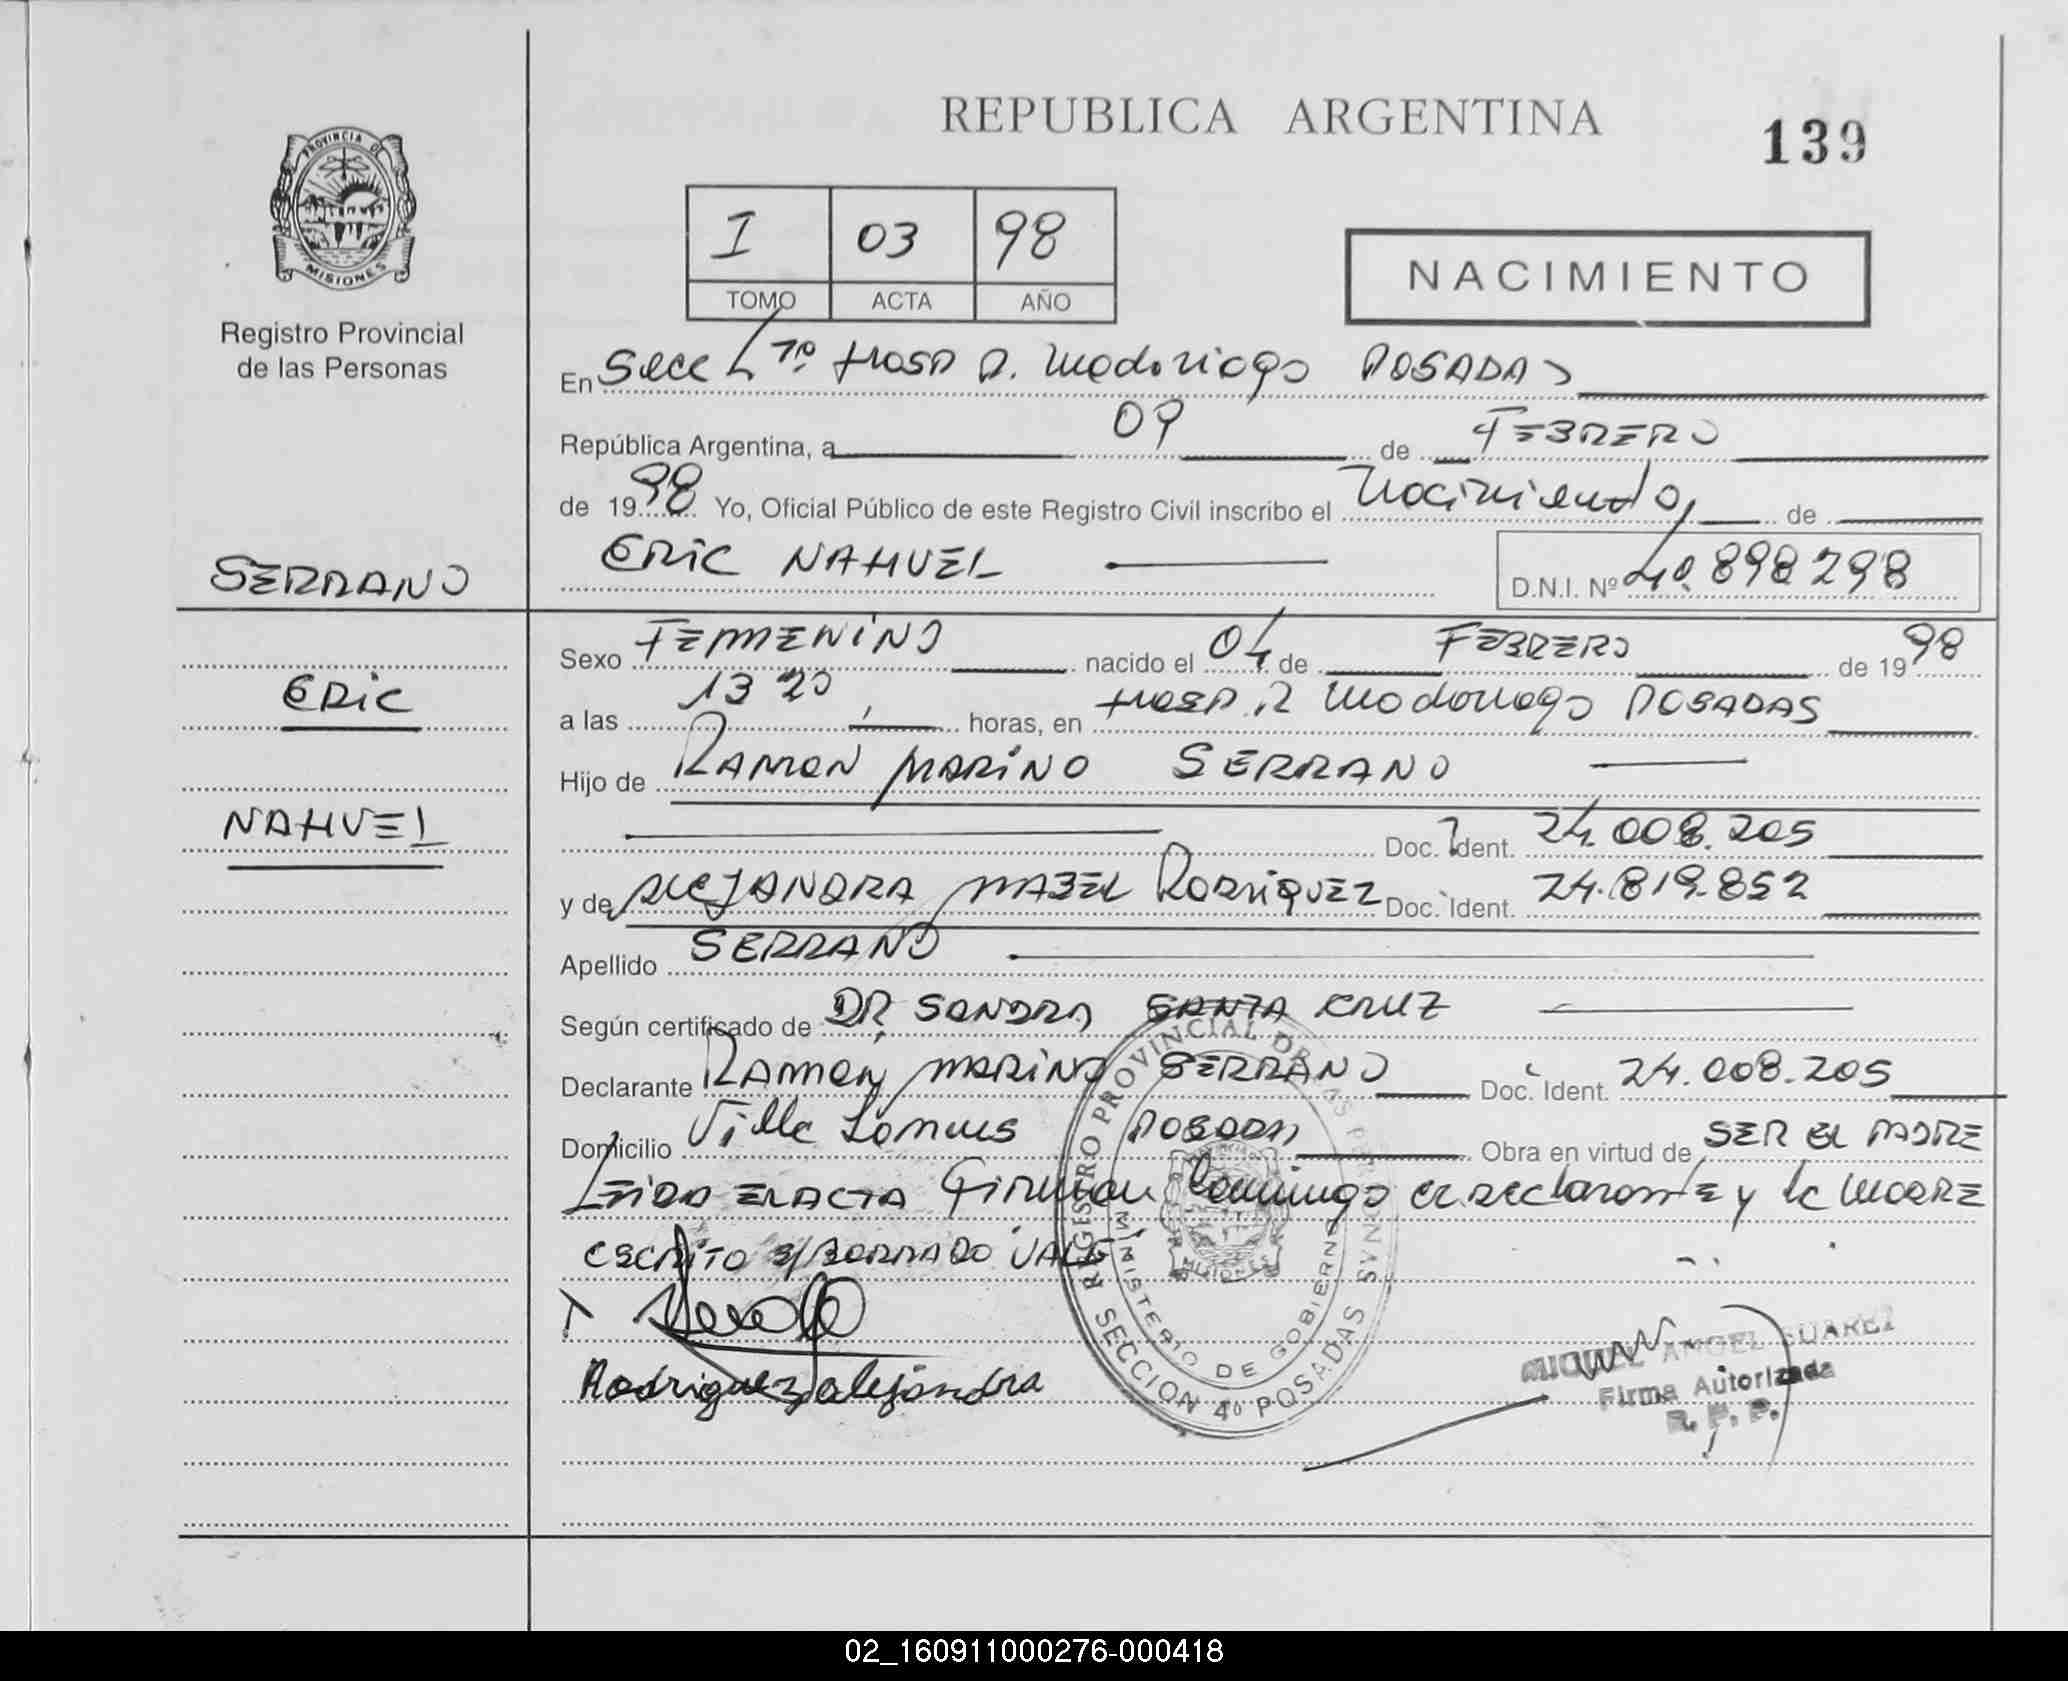 REPUBLICA ARGENTINA
139
PROVINCIA DE
MISIONES
Registro Provincial
de las Personas
I 03 98
TOMO ACTA AÑO
NACIMIENTO
En Secc 4ta Hosp R. Madariaga POSADAS
República Argentina, a 09 de FEBRERO
de 1998 Yo, Oficial Público de este Registro Civil inscribo el Nacimiento, de
SERRANO
ERIC NAHUEL D.N.I. Nº 40.898298
Sexo FEMMENINO nacido el 04 de FEBRERO de 1998
ERIC
a las 13 20, horas, en HOSP. R Madariaga POSADAS
Hijo de RAMON MARINO SERRANO
NAHUEL
Doc. Ident. 24.008.205
y de ALEJANDRA MABEL RODRIGUEZ Doc. Ident. 24.819.852
Apellido SERRANO
Según certificado de DR SANDRA SANTA CRUZ
Declarante RAMON MARINO SERRANO Doc. Ident. 24.008.205
Domicilio Villa Lanus POSADAS Obra en virtud de SER EL PADRE
LEIDA EL ACTA Firman Conmigo el declarante y la MADRE
ESCRITO S/BORRADO VALE
Rodriguez alejandra
REGISTRO PROVINCIAL DE LAS PERSONAS
MINISTERIO DE GOBIERNO
MISIONES
SECCION 4º POSADAS
MIGUEL ANGEL SUAREZ
Firma Autorizada
R. P. P.
02_160911000276-000418